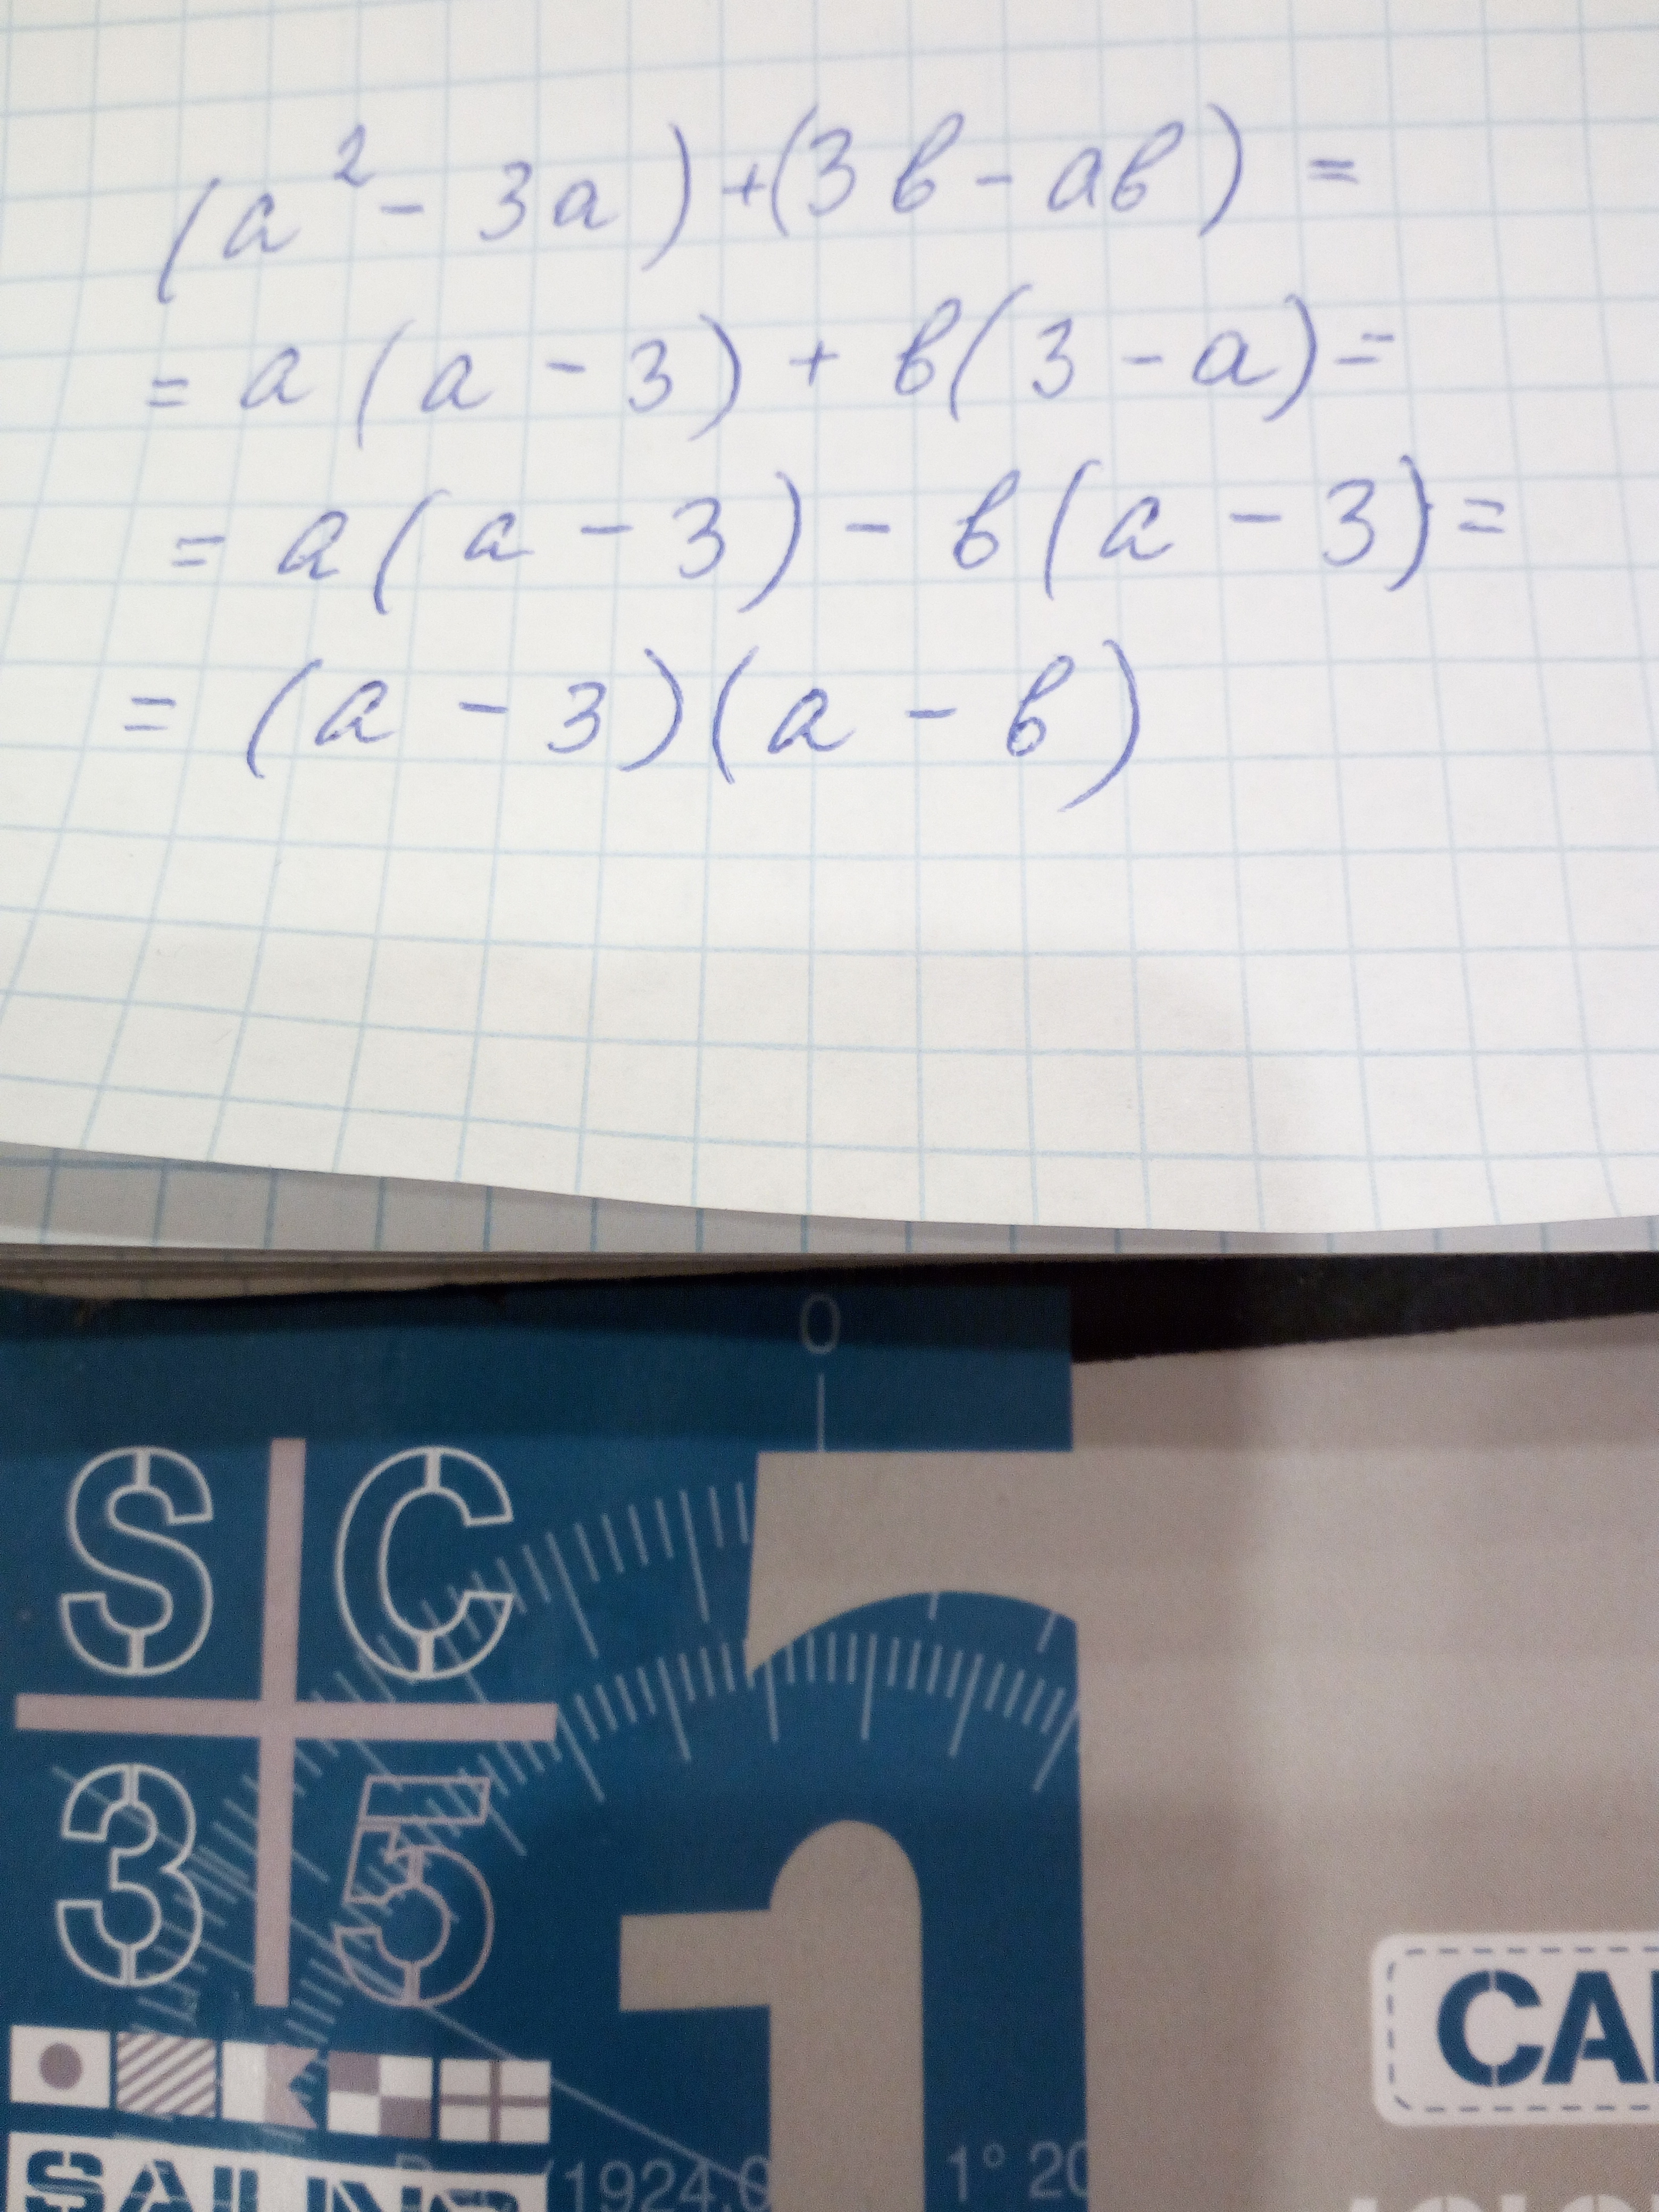 (a² - 3a) + (3в - ав) =
= a(a - 3) + в(3 - a) =
= a(a - 3) - в(a - 3) =
= (a - 3)(a - в)
0
S C
3 5
1
SAILING
(1924,0
1° 20